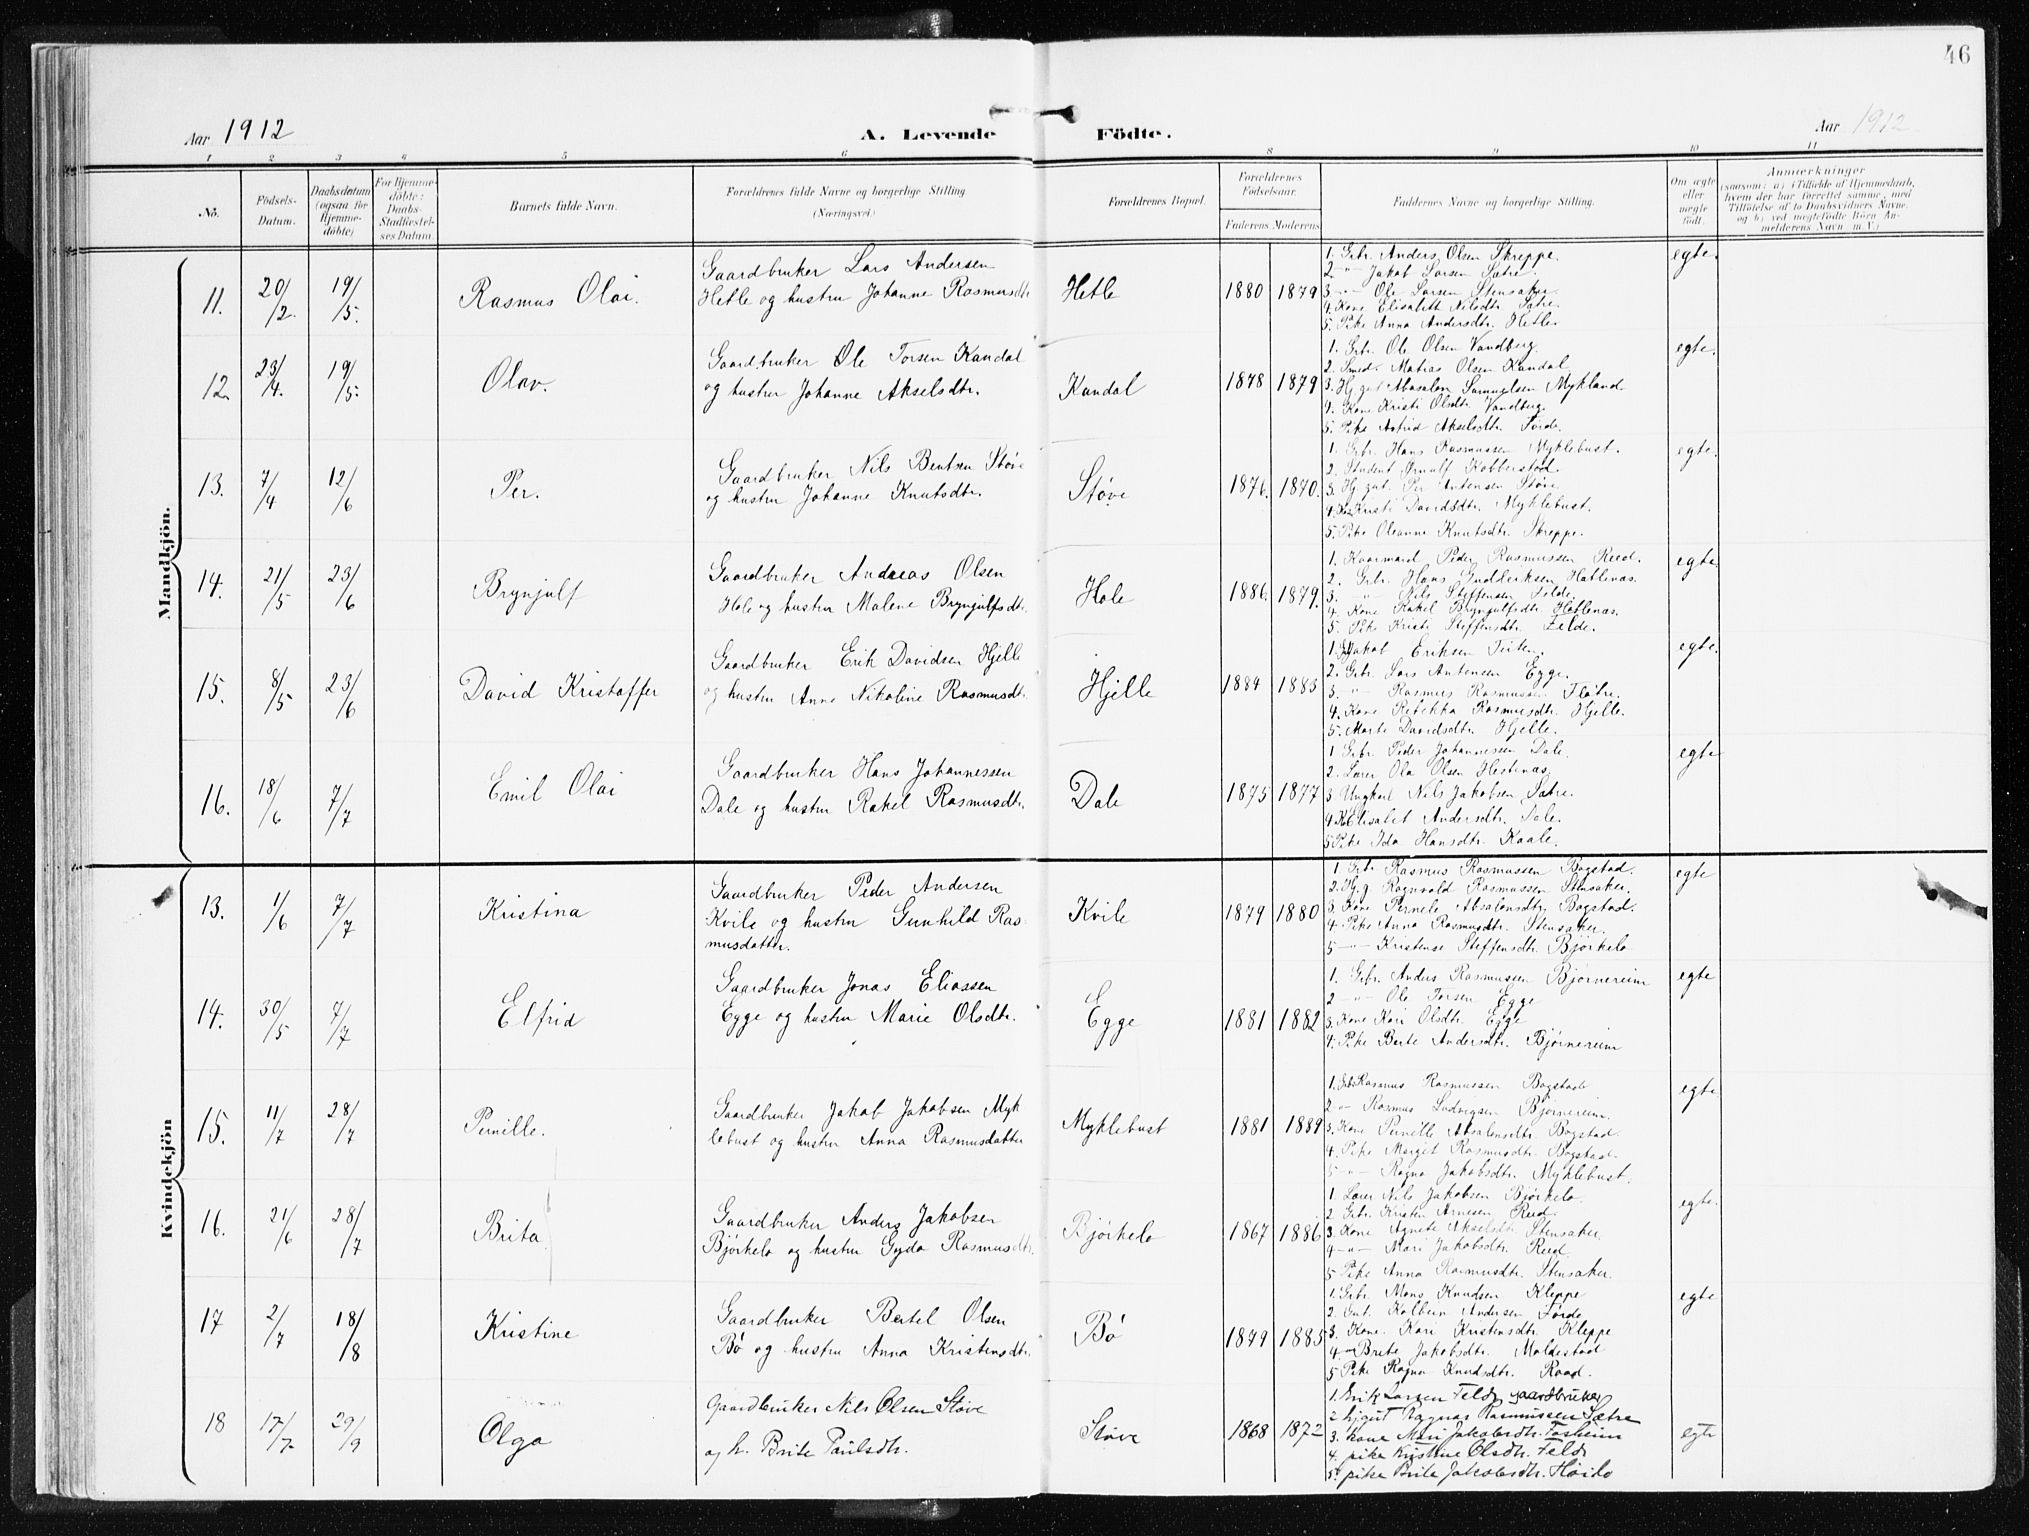 46
Aar 1912
A. Levende Födte.
Aar 1912
1 2 3 4 5 6 8 9 10 11
No.
Födsels-Datum.
Daabsdatum (ogsaa for Hjemme-döbte)
For Hjemme-döbte: Daabs-Stadfæstel-ses Datum.
Barnets fulde Navn.
Forældrenes fulde Navne og borgerlige Stilling
(Næringsvei.)
Forældrenes Bopæl.
Forældrenes Födselsaar.
Faderens. Moderens.
Faddernes Navne og borgerlige Stilling.
Om ægte eller uægte födt.
Anmærkninger
(saasom: a) i Tilfælde af Hjemmedaab,
hvem der har forrettet samme, med
Tilföielse af to Daabsvidners Navne.
og b) ved uegtefödte Börn An-
melderens Navn m. V.)
Mandkjön.
11. 20/2. 19/5. Rasmus Olai.
Gaardbruker Lars Andersen
Hetle og hustru Johanne Rasmusdtr
Hetle 1880 1879
1. Grbr. Anders Olsen Skreppe.
2. -"- Jakob Larsen Sætre.
3. -"- Ole Larsen Stensaker
4. Kone Elisabeth Nilsdtr Sætre.
5. Pike Anna Andersdtr. Hetle.
egte.
12. 23/4. 19/5. Olav.
Gaardbruker Ole Torsen Kandal
og hustru Johanne Akselsdtr.
Kandal 1878 1879
1. Grbr. Ole Olsen Vandberg.
2. Smed. Matias Olsen Kandal
3. Hj. gut Absalon Samuelsen Mykland
4. Kone Kristi Olsdtr Vandberg.
5. Pike Astrid Akselsdtr. Førde.
egte.
13. 7/4 12/6 Per.
Gaardbruker Nils Bentsen Støve
og hustru Johanne Knutsdtr.
Støve 1876. 1870.
1. Grbr. Hans Rasmussen Myklebust.
2. Student Ørnulf Kobberstad.
3. Hj. gut. Per Antonsen Støve
4. Kone Kristi Davidsdtr. Myklebust.
5. Pike Oleanne Knutsdtr. Skreppe.
egte.
14. 21/5 23/6 Brynjulf
Gaardbruker Andreas Olsen
Hole og hustru Malene Brynjulfsdtr.
Hole 1886. 1879.
1. Kaarmand Peder Rasmussen Reed.
2. Grbr. Hans Hetlenæs.
3. -"- Nils Steffensen Felde.
4. Kone Rakel Brynjulfsdtr. Hetlenæs.
5. Pike Kristi Steffensdtr. Felde.
egte
15. 8/5 23/6 David Kristoffer
Gaardbruker Erik Davidsen Hjelle
og hustru Anne Nikoline Rasmusdtr.
Hjelle 1884 1883
1. Jakob Eriksen
2. Grbr. Lars Antonsen Egge.
3. -"- Rasmus Rasmussen Fløtre.
4. Kone Rebekka Rasmusdtr. Hjelle.
5. Marte Davidsdtr. Hjelle.
egte.
16. 18/6 7/7 Emil Olai
Gaardbruker Hans Johannessen
Dale og hustru Rakel Rasmusdtr.
Dale 1875 1877
1. Grbr. Peder Johannessen Dale.
2. Lærer Ola Olsen Hestenæs.
3. Ungkarl Nils Jakobsen Sætre.
4. Elisabet Andersdtr. Dale.
5. Pike Ida Hansdtr. Kaale.
egte
Kvindekjön
13. 1/6 7/7 Kristina
Gaardbruker Peder Andersen
Kvile og hustru Gunhild Ras-
musdatter.
Kvile 1879 1880
1. Grbr. Rasmus Rasmussen Bogstad.
2. Hj. g. Ragnvald Rasmussen Stensaker.
3. Kone Pernele Absalonsdtr. Bogstad.
4. Pike Anna Rasmusdtr. Stensaker.
5 -"- Kristense Steffensdtr. Bjørkelo
egte
14. 30/5 7/7 Elfrid
Gaardbruker Jonas Eliassen
Egge og hustru Marie Olsdtr.
Egge 1881 1882
1. Grbr. Anders Rasmussen Bjørnereim
2 -"- Ole Torsen Egge
3. Kone Kari Olsdtr. Egge
4. Pike Berte Andersdtr. Bjørnereim
egte
15. 11/7 28/7 Pernille.
Gaardbruker Jakob Jakobsen Myk
lebust og hustru Anna Rasmusdatter
Myklebust 1881 1889
1. Grbr Rasmus Rasmussen Bogstad
2 -"- Rasmus Ludvigsen Bjørnereim.
3. Kone Pernille Absalonsdtr. Bogstad.
4. Pike Marget Rasmusdtr. Bogstad.
5 -"- Ragna Jakobsdtr. Myklebust.
egte
16. 21/6 28/7 Brita
Gaardbruker Anders Jakobsen
Bjørkelo og hustru Gyda Rasmusdtr.
Bjørkelo 1867 1886
1. Lærer Nils Jakobsen Bjørkelo.
2. Grbr. Kristen Arnesen Reed.
3. Kone Agnete Akselsdtr. Stensaker.
4 -"- Mari Jakobsdtr. Reed
5 Pike Anna Rasmusdtr. Stensaker.
egte.
17 2/7 18/8 Kristine
Gaardbruker Bertel Olsen
Bö og hustru Anna Kristensdtr.
Bö 1879 1885
1. Grbr. Mons Knudsen Kleppe
2. Gut. Kolbein Andersen Førde
3. Kone. Kari Kristensdtr. Kleppe
4. -"- Brite Jakobsdtr. Moldestad
5 Pike Ragna Knudsdtr. Raad.
egte
18 17/7 29/9 Olga
Gaardbruker Nils Olsen Støve
og h. Brite Paulsdtr.
Støve 1868 1872
1. Erik Larsen Felde gaardbruker
2 hjgut Ragnar Rasmussen Sætre
3. kone Mari Jakobsdtr. Fosheim
4. pike Kristine Olsdtr. Felde
5. pike Brite Jakobsdtr.
egte